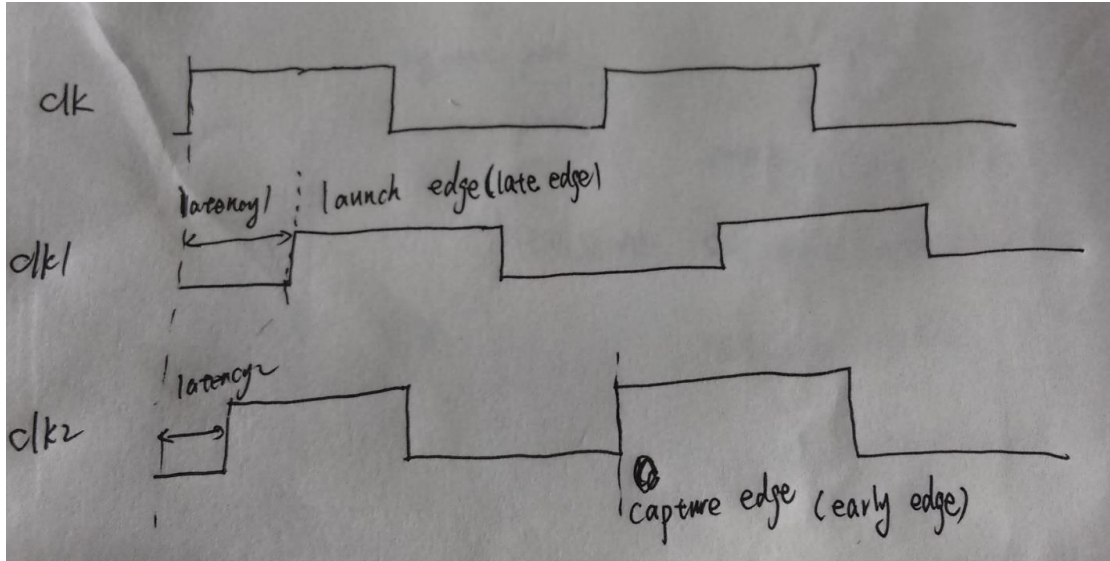 clk
latency1 launch edge (late edge)
clk1
latency2
clk2
capture edge (early edge)